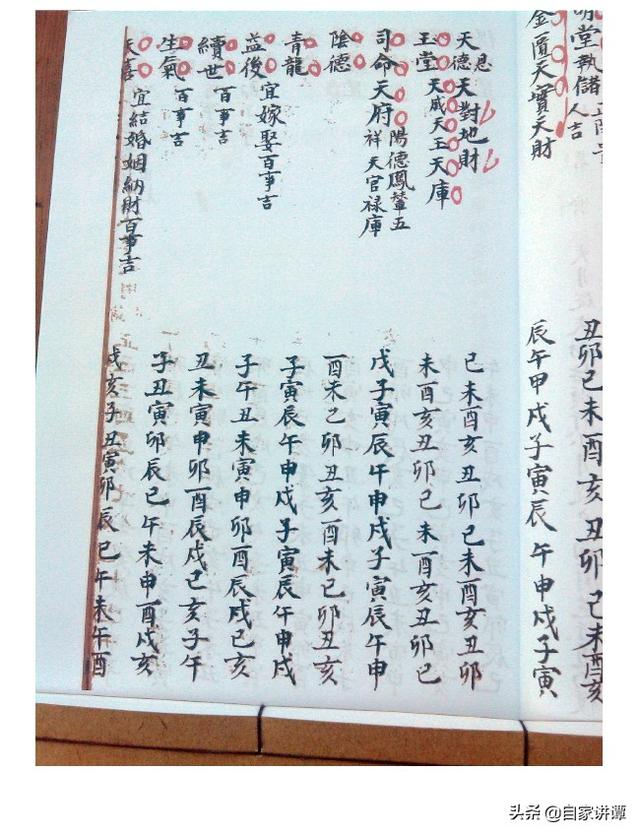 堂執儲
人吉
丑卯已未酉亥丑卯已未酉亥
金匱天寶天財
辰午甲戌子寅辰午申戌子寅
天德恩天對地財
已未酉亥丑卯已未酉亥丑卯
玉堂天成天玉天庫
未酉亥丑卯已未酉亥丑卯已
司命天府陽德鳳輦五祥天官祿庫
戌子寅辰午申戌子寅辰午申
陰德
酉未已卯丑亥酉未已卯丑亥
青龍
子寅辰午申戌子寅辰午申戌
益後宜嫁娶百事吉
子午丑未寅申卯酉辰戌已亥
續世百事吉
丑未寅申卯酉辰戌已亥子午
生氣百事吉
子丑寅卯辰已午未申酉戌亥
天喜宜結婚姻納財百事吉
戌亥子丑寅卯辰已午未午酉
头条 @自家讲谭